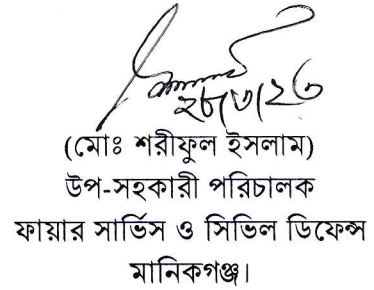 ২৮/৩/২৩
(মোঃ শরীফুল ইসলাম)
উপ-সহকারী পরিচালক
ফায়ার সার্ভিস ও সিভিল ডিফেন্স
মানিকগঞ্জ।